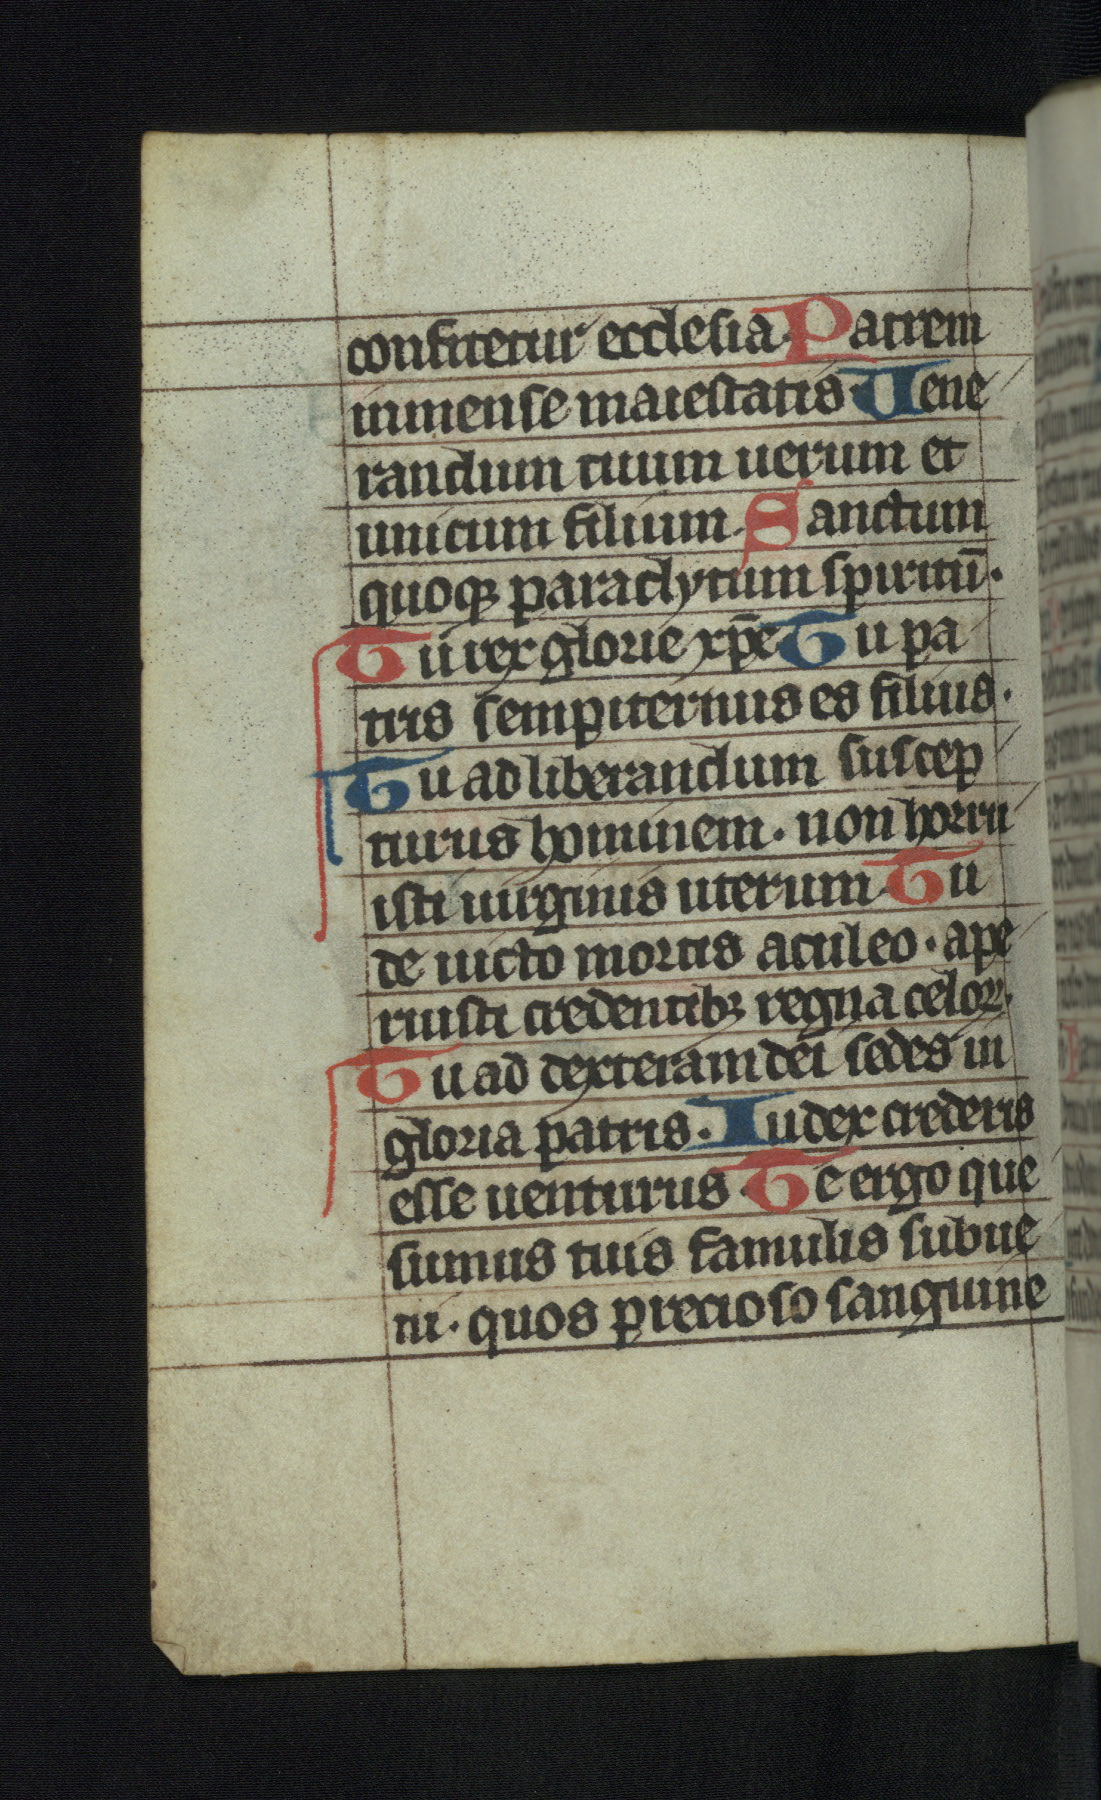 confitetur ecclesia. Patrem
inmense maiestatis. Uene
randum tuum uerum et
unicum filium. Sanctum
quoqꝫ paraclytum spiritū.
Tu rex glorie xp̄e Tu pa
tris sempiternus es filius.
Tu ad liberandum suscep
turus hominem. non horru
isti uirginis uterum. Tu
deuicto mortis aculeo. ape
ruisti credentibꝫ regna celoꝝ.
Tu ad dexteram dei sedes in
gloria patris. Iudex crederis
esse uenturus. Te ergo que
sumus tuis famulis subue
ni. quos precioso sanguine